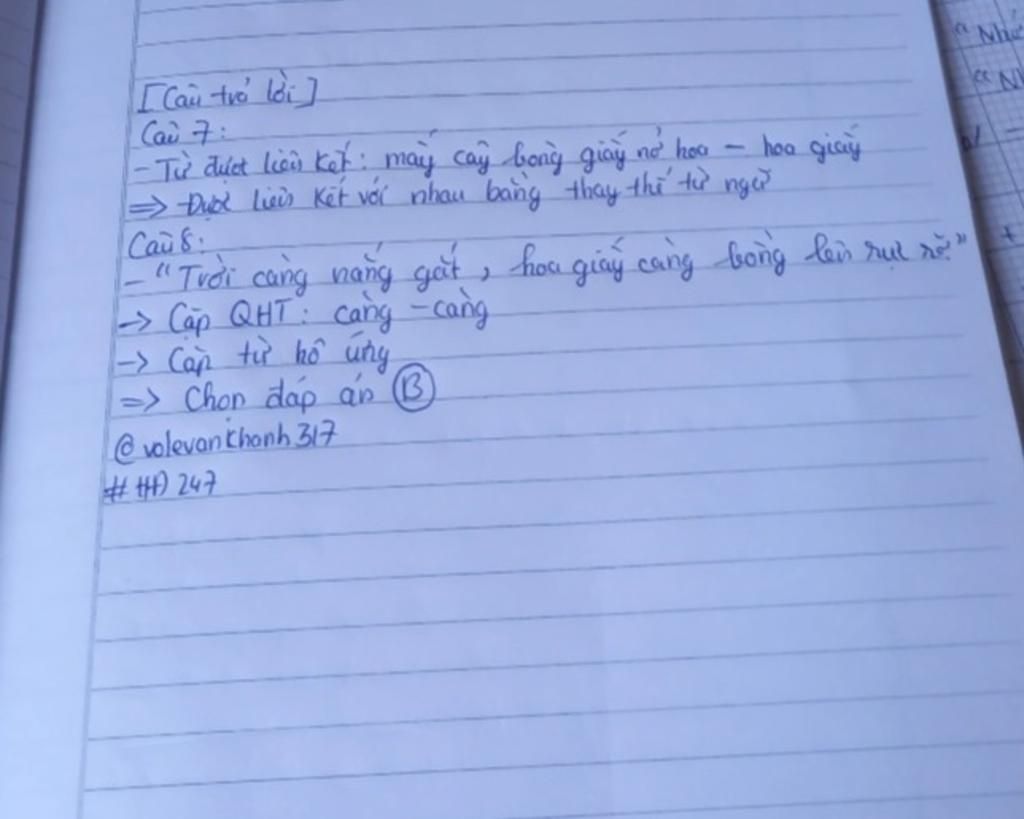 [Câu trả lời]
Câu 7:
- Từ được liên kết: mấy cây bông giấy nở hoa - hoa giấy
=> Được liên kết với nhau bằng thay thế từ ngữ
Câu 8:
- "Trời càng nắng gắt, hoa giấy càng bồng lên rực rỡ."
-> Cặp QHT: càng - càng
-> Cặp từ hô ứng
=> Chọn đáp án B
@volevankhanh317
# 247
"Nhữ
"N